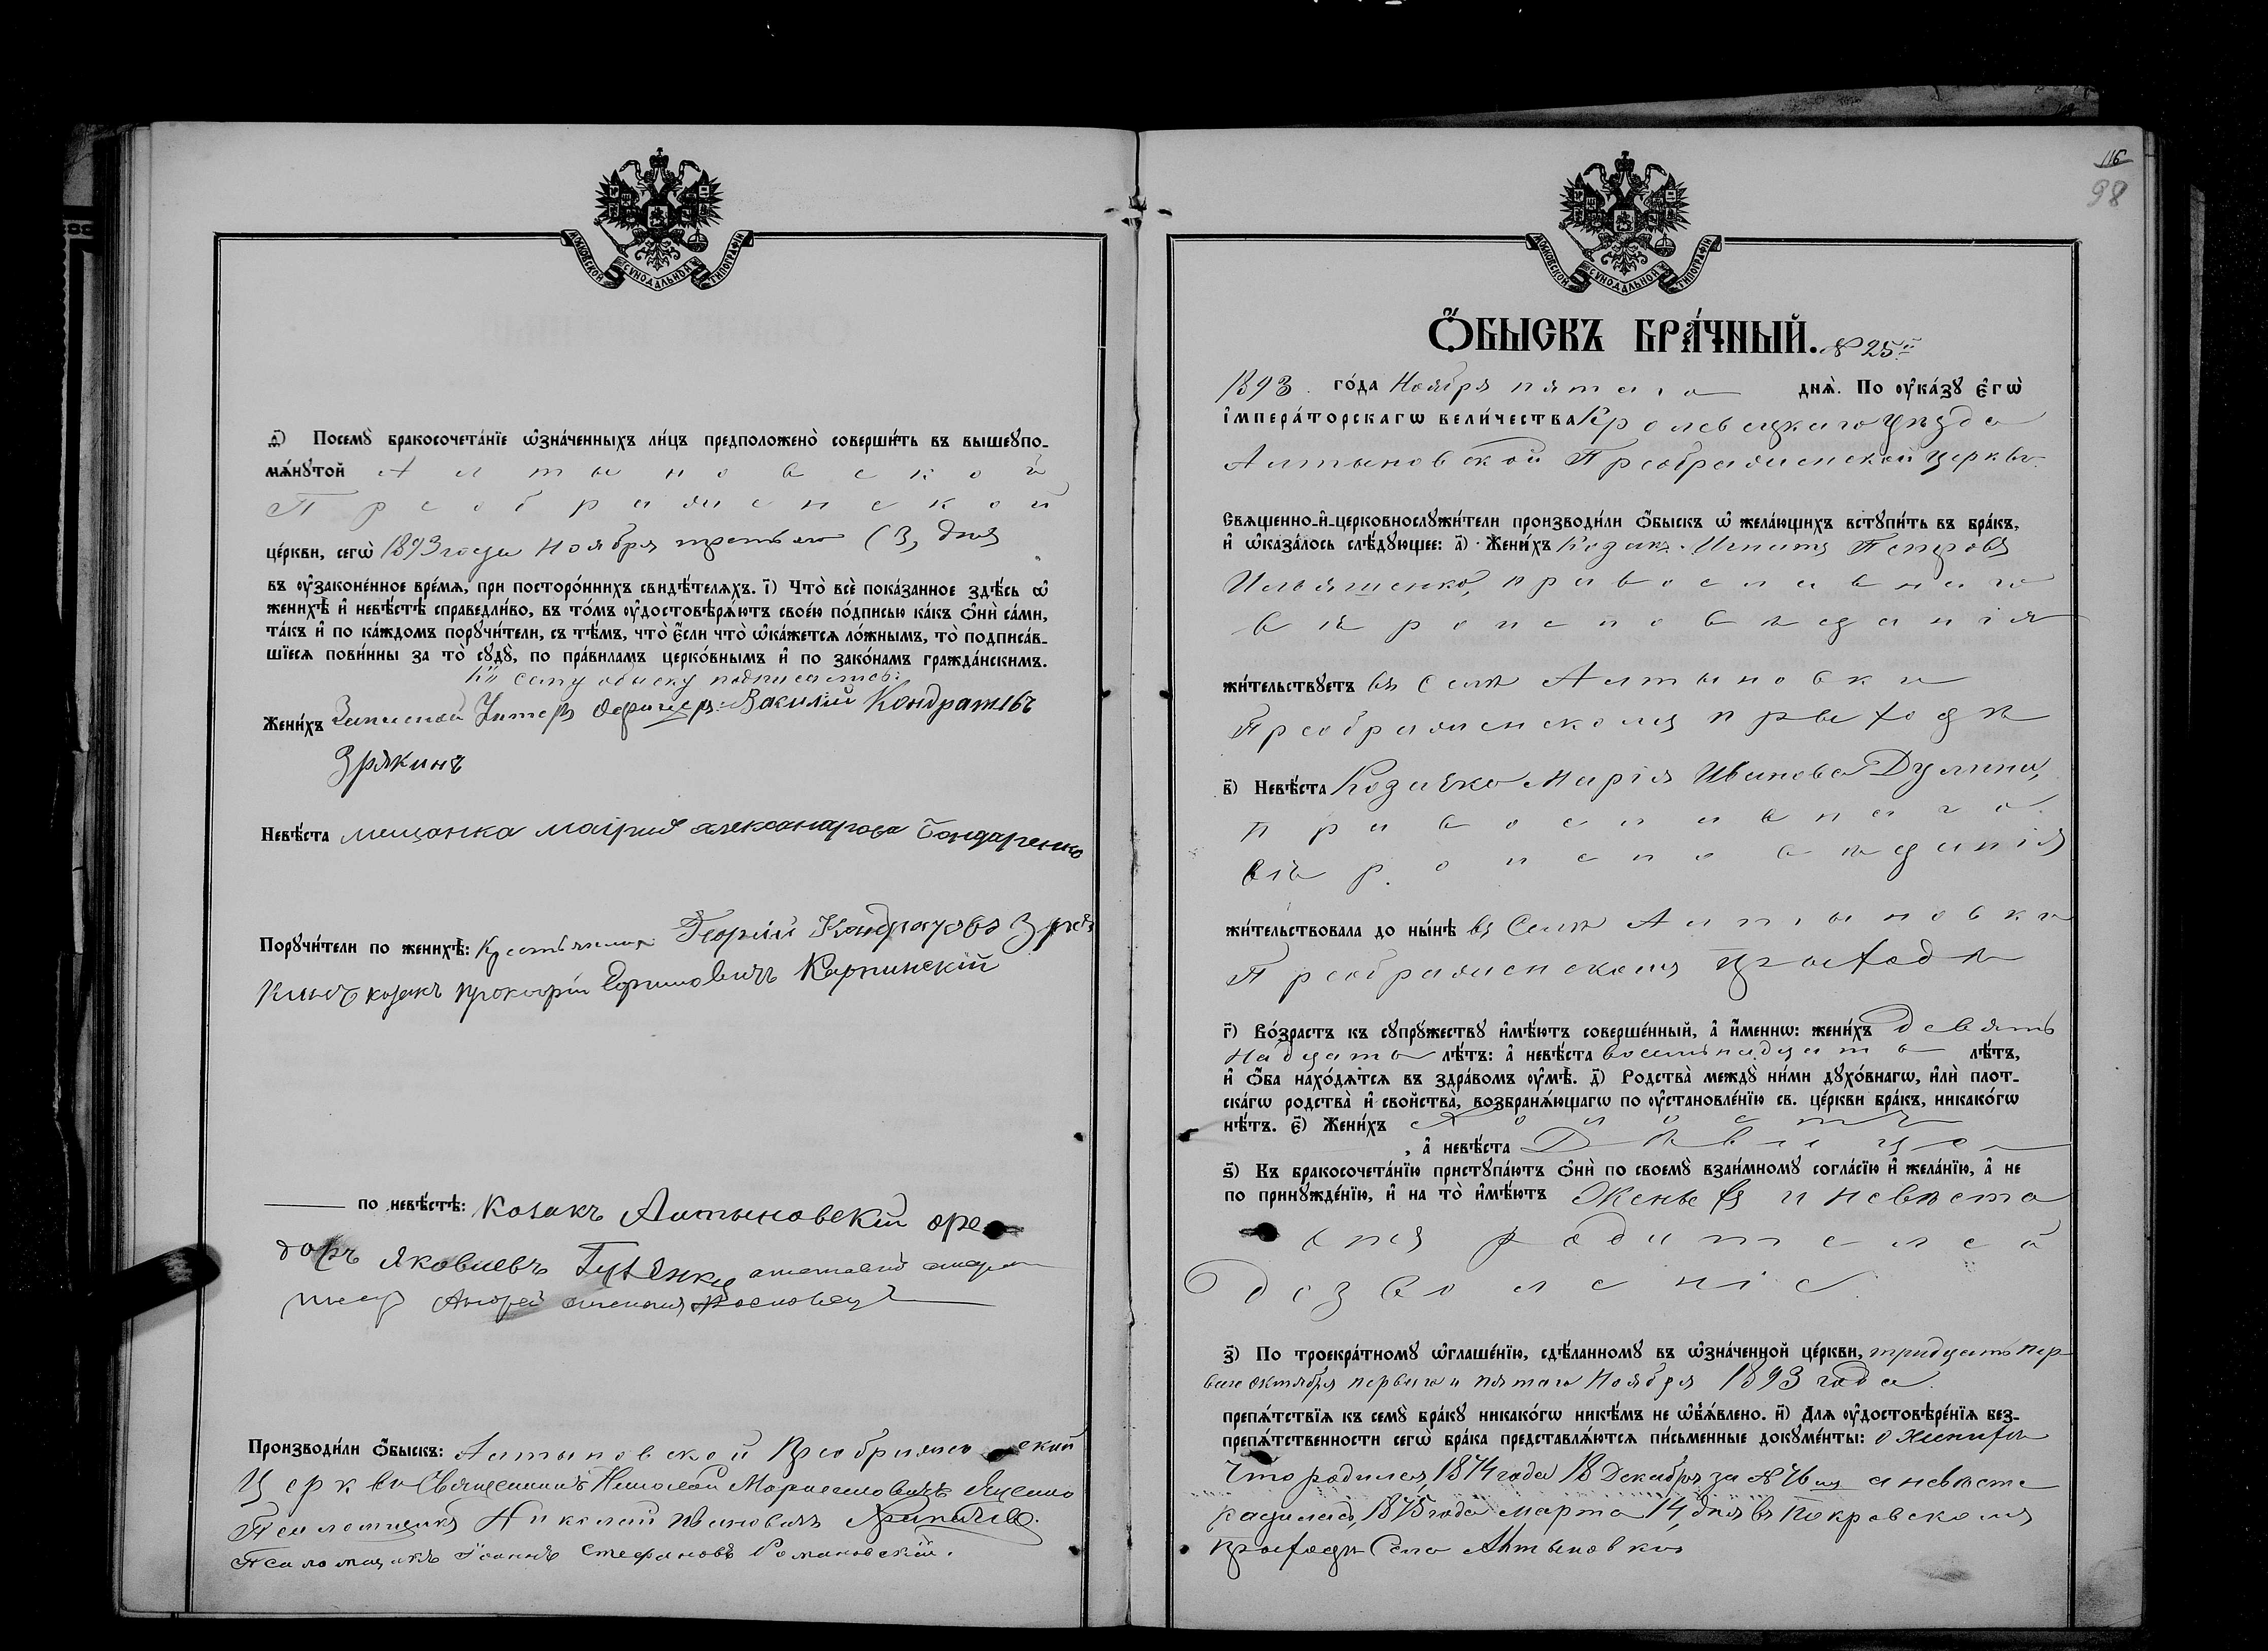 МОСКОВСКОЙ СѴНОДАЛЬНОЙ ТИПОГРАФІИ
д҃і) Посемꙋ̀ бракосочета́нїе ѡ҆зна́ченныхъ ли́цъ предположено̀ соверши́ть въ вышеꙋпо-
мѧ́нꙋтой Алтыновской
Преображенской
це́ркви, сегѡ̀ 1893 года Ноября третьяго (3, дня
въ ᲂу҆зако́ненное вре́мѧ, при посторо́ннихъ свидѣ́телѧхъ. і҃) Что̀ всѐ пока́занное здѣ́сь ѡ҆
женихѣ̀ и҆ невѣ́стѣ справедли́во, въ то́мъ ᲂу҆достовѣрѧ́ютъ свое́ю по́дписью ка́къ ѻ҆нѝ са́ми,
та́къ и҆ по ка́ждомъ порꙋчи́тели, съ тѣ́мъ, что̀ є҆́сли что̀ ѡ҆ка́жетсѧ ло́жнымъ, то̀ подписа́в-
шїесѧ пови́нны за то̀ сꙋдꙋ̀, по пра́виламъ церко́внымъ и҆ по зако́намъ гражда́нскимъ.
Къ сему обыску подписались:
Жени́хъ Запасной Унтеръ Офицеръ Василий Кондратьевъ
Зрякинъ
Невѣ́ста мещанка Марія александрова Бондаренко
Порꙋчи́тели по женихѣ̀: Крестьянинъ Георгий Кондратовъ Зря
кинъ козакъ Прокофій Карпинскій
по невѣ́стѣ: Козакъ Алтыновскій Фео
доръ Яковлевъ
Андрей
Производи́ли ѻ҆́быскъ: Алтыновской Преображенской
Церкви Священникъ Николай Яценко
Псаломщикъ Николай Ивановичъ
Псаломщикъ Іоаннъ Стефановъ Романовскій.
116
98
МОСКОВСКОЙ СѴНОДАЛЬНОЙ ТИПОГРАФІИ
Ѻ҆́БЫСКЪ БРА́ЧНЫЙ. № 25й
1893 го́да Ноября пятаго днѧ̀. По ᲂу҆ка́зꙋ є҆гѡ̀
і҆мпера́торскагѡ вели́чества Кролевецкаго уѣзда
Алтыновской Преображенской церкви
Свѧщенно-и҆-церковнослꙋжи́тели производи́ли ѻ҆́быскъ ѡ҆ жела́ющихъ встꙋпи́ть въ бра́къ,
и҆ ѡ҆каза́лось слѣ́дꙋющее: а҃) Жени́хъ Козакъ Игнатъ Петровъ
Ильяшенко, православнаго
вѣроисповѣданія
жи́тельствꙋетъ въ селѣ Алтыновки
Преображенскомъ приходѣ
в҃) Невѣ́ста Козачка Марія Иванова Думина,
православнаго
вѣроисповѣданія
жи́тельствовала до ны́нѣ въ Селѣ Алтыновки
Преображенскомъ приходѣ
г҃) Во́зрастъ къ сꙋпрꙋ́жествꙋ и҆мѣ́ютъ соверше́нный, а҆ и҆́меннѡ: жени́хъ девять
надцать лѣ́тъ: а҆ невѣ́ста восемьнадцать лѣ́тъ,
и҆ ѻ҆́ба нахо́дѧтсѧ въ здра́вомъ ᲂу҆мѣ̀. д҃) Родства̀ междꙋ̀ ни́ми дꙋхо́внагѡ, и҆лѝ плот-
ска́гѡ родства̀ и҆ свойства̀, возбранѧ́ющагѡ по ᲂу҆становле́нїю св. це́ркви бра́къ, никако́гѡ
нѣ́тъ. є҃) Жени́хъ холостъ
, а҆ невѣ́ста Дѣвица
ѕ҃) Къ бракосочета́нїю пристꙋпа́ютъ ѻ҆нѝ по своемꙋ̀ взаи́мномꙋ согла́сїю и҆ жела́нїю, а҆ не
по принꙋжде́нїю, и҆ на то̀ и҆мѣ́ютъ Женихъ и невѣста
отъ родителей
дозволеніе.
з҃) По троекра́тномꙋ ѡ҆глаше́нїю, сдѣ́ланномꙋ въ ѡ҆зна́ченной це́ркви, тридцать пер
ваго октября перваго и пятаго Ноября 1893 года.
препѧ́тствїѧ къ семꙋ̀ бра́кꙋ никако́гѡ никѣ́мъ не ѡ҆б̾ѧ́влено. и҃) Длѧ ᲂу҆достовѣре́нїѧ без-
препѧ́тственности сегѡ̀ бра́ка представлѧ́ютсѧ пи́сьменные докꙋме́нты: о женихѣ
Что родился, 1874 года 18 Декабря за № 76 мъ а невѣста
родилась, 1875 года Марта 14, дня въ Покровскомъ
приходѣ Села Алтыновки